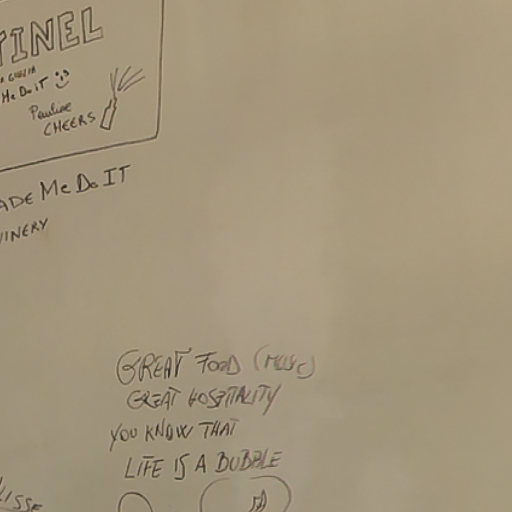 TINEL
Me Do IT
Pauline
CHEERS
ADE Me Do IT
INERY
GREAT FOOD (MUSIC)
GREAT HOSPITALITY
YOU KNOW THAT
LIFE IS A BUBBLE
LISSE